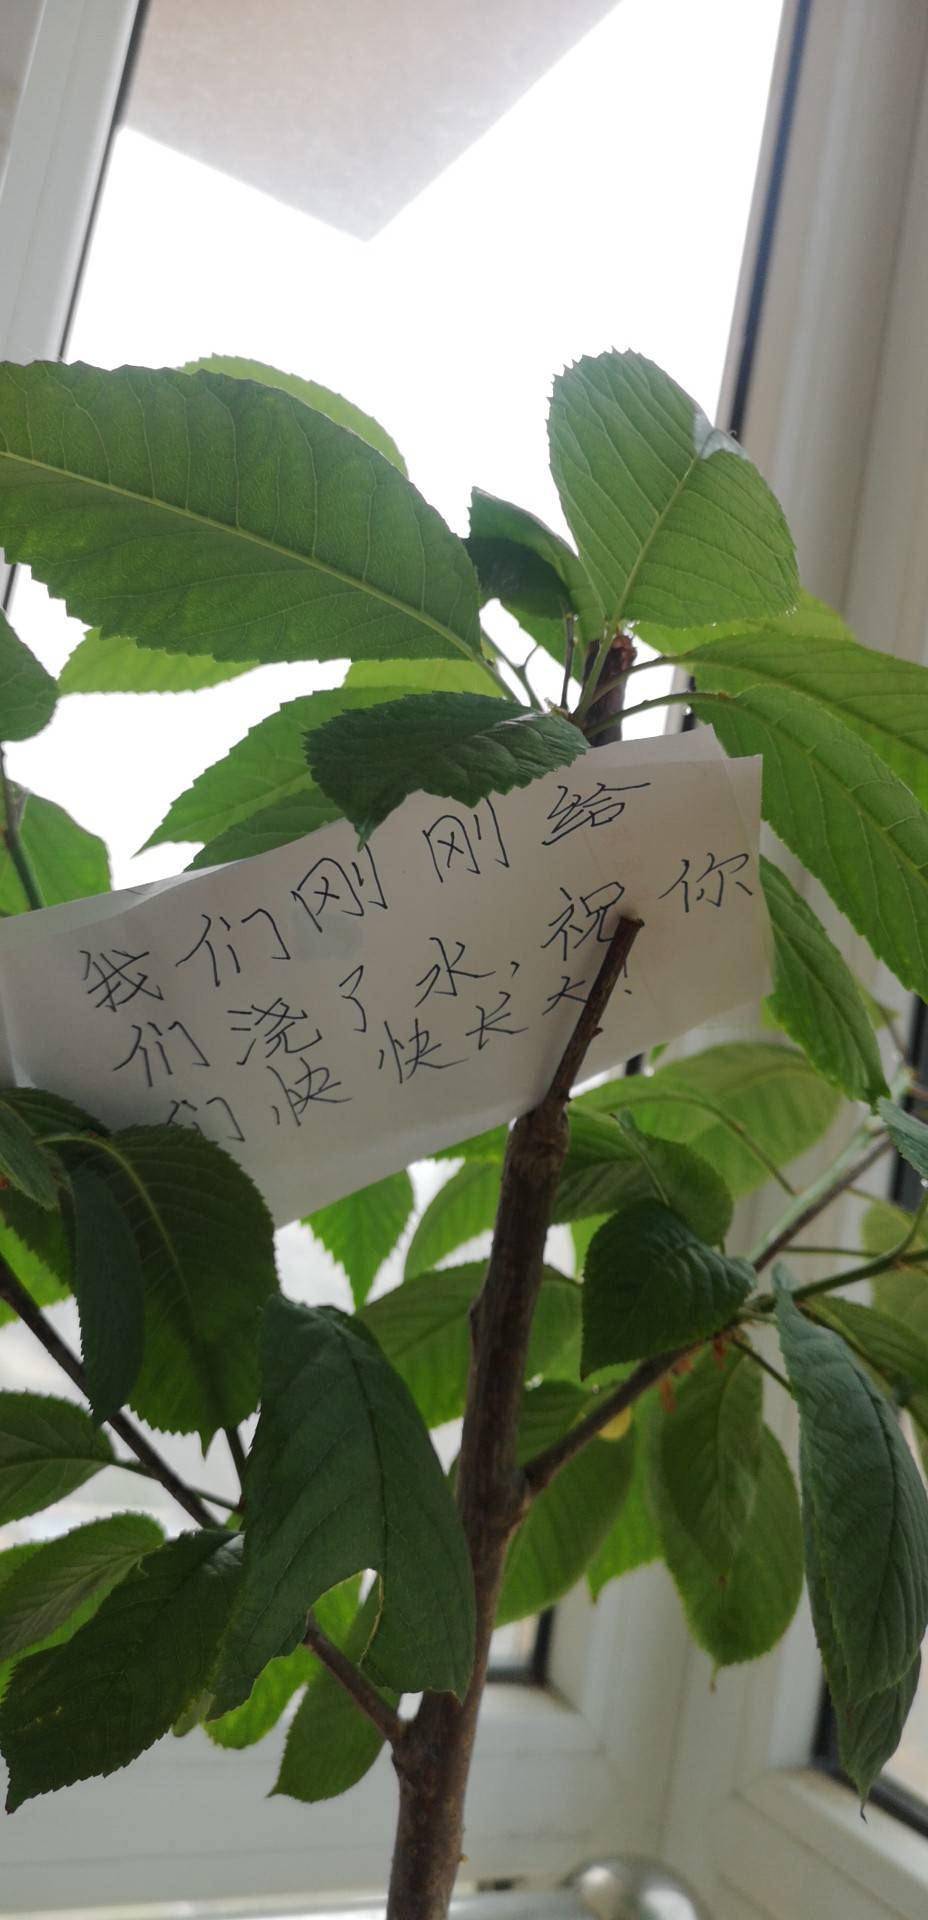 我们刚刚给
们浇了水，祝你
们快快长大！